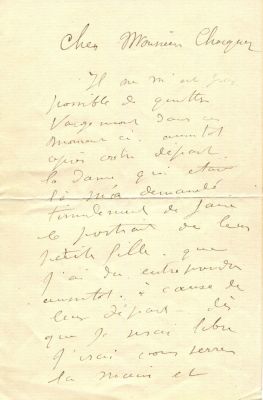 Cher Monsieur Chocquet
Il ne m'est pas
possible de quitter
Wargemont dans ce
moment ci. aussitot
après votre départ
la dame qui était
là m'a demandé
timidement de faire
le portrait de leur
petite fille. que
j'ai du entreprendre
aussitot. à cause de
leur départ. dès
que je serai libre
j'irai vous serrer
la main et